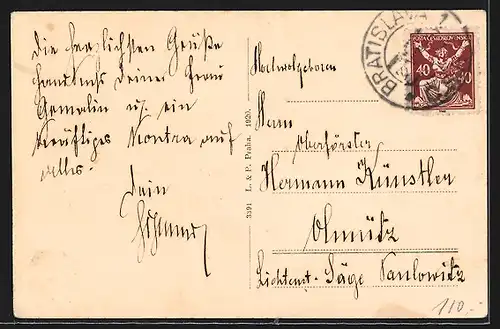 Die herzlichsten Grüße
Deiner Frau
Gemalin u. ein
kräftiges Kontra auf
alles.
Dein
3391 L. & P. Praha. 1920.
BRATISLAVA 1
POŠTA ČESKOSLOVENSKÁ
40 40
Hochwohlgeboren
Herrn
Oberförster
Hermann Künstler
Olmütz
Lichtenst. Säge Paulowitz
110,-